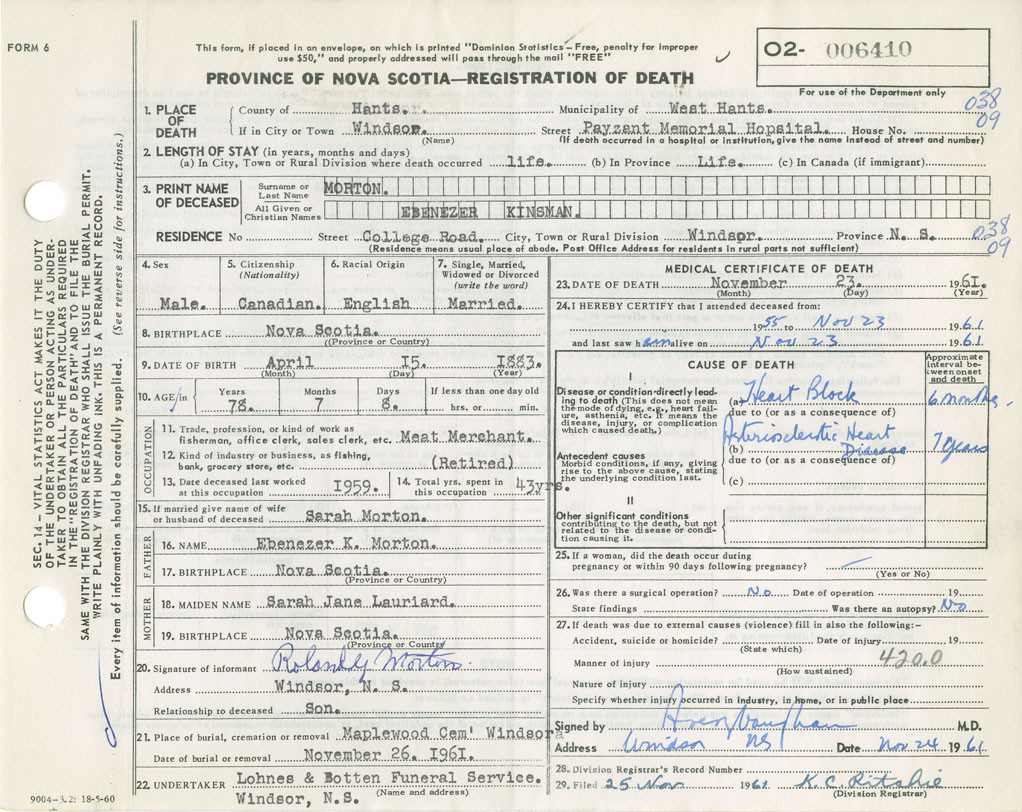 FORM 6
This form, if placed in an envelope, on which is printed "Dominion Statistics – Free, penalty for improper
use $50," and properly addressed will pass through the mail "FREE"
O2- 006410
PROVINCE OF NOVA SCOTIA—REGISTRATION OF DEATH
For use of the Department only
1. PLACE OF DEATH County of Hants. Municipality of West Hants. 038
If in City or Town Windsor. Street Payzant Memorial Hopsital. House No. 09
(Name) (If death occurred in a hospital or institution, give the name instead of street and number)
2. LENGTH OF STAY (in years, months and days)
(a) In City, Town or Rural Division where death occurred life. (b) In Province Life. (c) In Canada (if immigrant)
3. PRINT NAME OF DECEASED Surname or Last Name MORTON.
All Given or Christian Names EBENEZER KINSMAN.
RESIDENCE No Street College Road. City, Town or Rural Division Windsor. Province N. S. 038
(Residence means usual place of abode. Post Office Address for residents in rural parts not sufficient) 09
4. Sex Male.
5. Citizenship (Nationality) Canadian.
6. Racial Origin English
7. Single, Married, Widowed or Divorced (write the word) Married.
8. BIRTHPLACE Nova Scotia.
((Province or Country)
9. DATE OF BIRTH April 15. 1883.
(Month) (Day) (Year)
10. AGE in Years 78. Months 7 Days 8. If less than one day old hrs. or min.
OCCUPATION
11. Trade, profession, or kind of work as
fisherman, office clerk, sales clerk, etc. Meat Merchant.
12. Kind of industry or business, as fishing,
bank, grocery store, etc. (Retired)
13. Date deceased last worked at this occupation 1959.
14. Total yrs. spent in this occupation 43yrs.
15. If married give name of wife
or husband of deceased Sarah Morton.
FATHER
16. NAME Ebenezer K. Morton.
17. BIRTHPLACE Nova Scotia.
(Province or Country)
MOTHER
18. MAIDEN NAME Sarah Jane Lauriard.
19. BIRTHPLACE Nova Scotia.
(Province or Country
20. Signature of informant Morton.
Address Windsor, N. S.
Relationship to deceased Son.
21. Place of burial, cremation or removal Maplewood Cem' Windsor
Date of burial or removal November 26. 1961.
22. UNDERTAKER Lohnes & Botten Funeral Service.
(Name and address)
Windsor, N.S.
9004-3.2: 18-5-60
MEDICAL CERTIFICATE OF DEATH
23. DATE OF DEATH November 23. 1961.
(Month) (Day) (Year)
24. I HEREBY CERTIFY that I attended deceased from:
1955 to Nov 23 1961
and last saw him alive on Nov 23 1961.
CAUSE OF DEATH
Approximate interval between onset and death
I
Disease or condition directly leading to death (This does not mean
the mode of dying, e.g., heart failure, asthenia, etc. It means the
disease, injury, or complication
which caused death.)
(a) Heart Block 6 months.
due to (or as a consequence of)
Antecedent causes
Morbid conditions, if any, giving
rise to the above cause, stating
the underlying condition last.
(b) Arteriosclerotic Heart Disease 7 years
due to (or as a consequence of)
(c)
II
Other significant conditions
contributing to the death, but not
related to the disease or condition causing it.
25. If a woman, did the death occur during
pregnancy or within 90 days following pregnancy?
(Yes or No)
26. Was there a surgical operation? No. Date of operation 19
State findings Was there an autopsy? No
27. If death was due to external causes (violence) fill in also the following:-
Accident, suicide or homicide? Date of injury 19
(State which)
Manner of injury 420.0
(How sustained)
Nature of injury
Specify whether injury occurred in industry, in home, or in public place
Signed by Avery Vaughan M.D.
Address Windsor NS Date Nov 24 1961
28. Division Registrar's Record Number
29. Filed 25 Nov 1961 K. C. Ritchie
(Division Registrar)
SEC. 14 – VITAL STATISTICS ACT MAKES IT THE DUTY
OF THE UNDERTAKER OR PERSON ACTING AS UNDER-
TAKER TO OBTAIN ALL THE PARTICULARS REQUIRED
IN THE "REGISTRATION OF DEATH" AND TO FILE THE
SAME WITH THE DIVISION REGISTRAR WHO SHALL ISSUE THE BURIAL PERMIT.
WRITE PLAINLY WITH UNFADING INK. THIS IS A PERMANENT RECORD.
Every item of information should be carefully supplied. (See reverse side for instructions.)